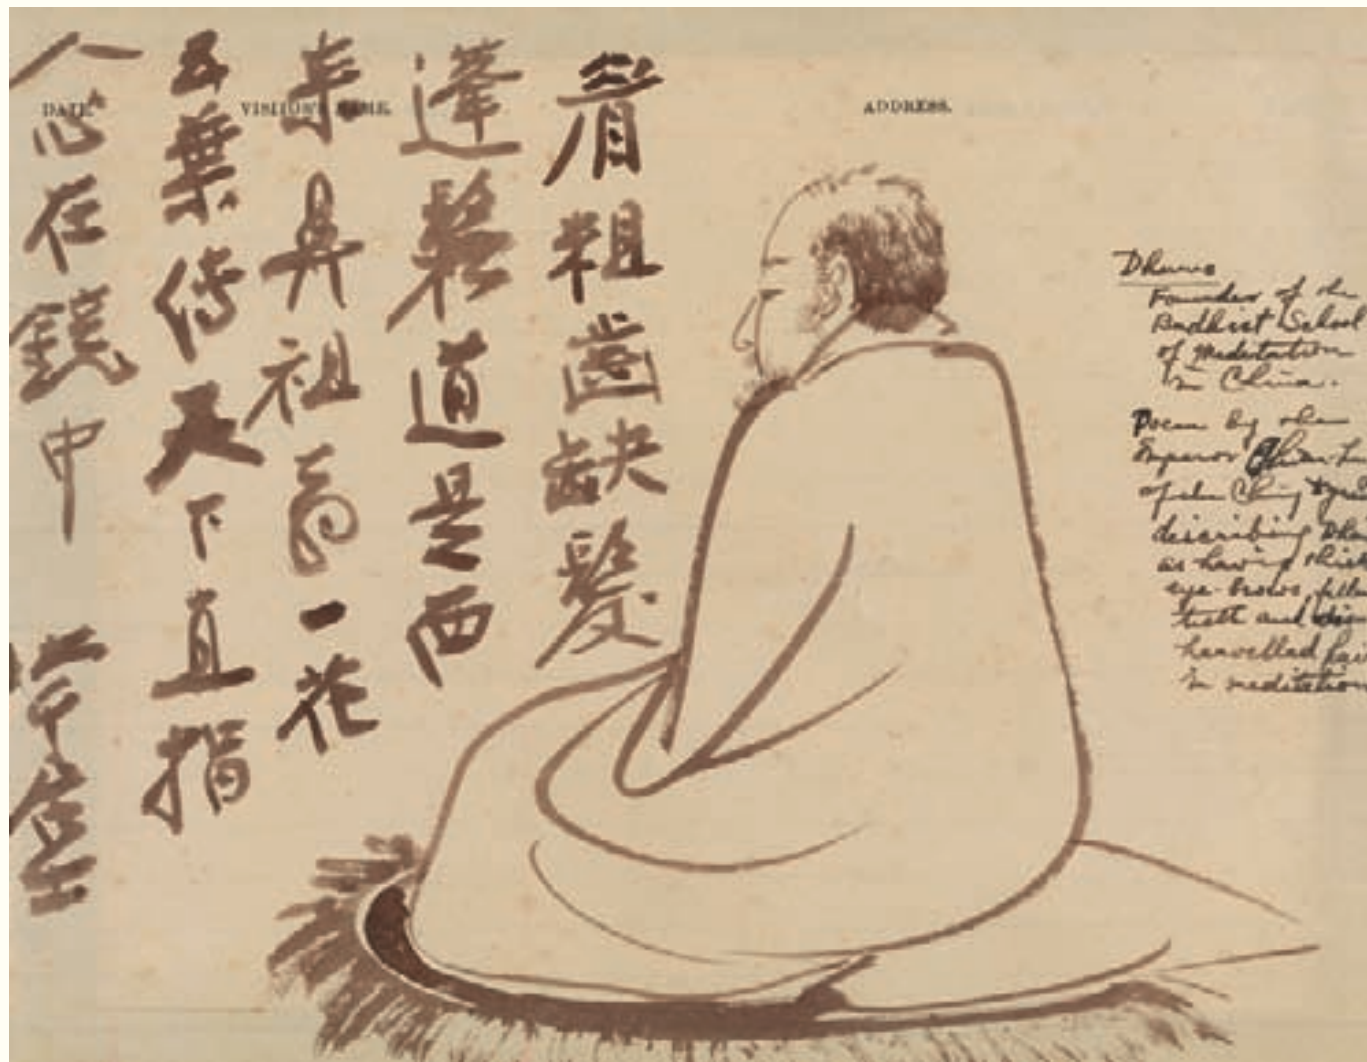 DATE. VISITOR'S NAME. ADDRESS.
眉粗齒缺髮
蓬鬆道是西
來鼻祖翁一花
五葉傳天下直指
人心在鏡中
Founder of the
Buddhist School
of Meditation
in China.
Poem by the
Emperor
of the Ching
describing
as having thick
eye-brows,
teeth and dis
hevelled hai
in meditation